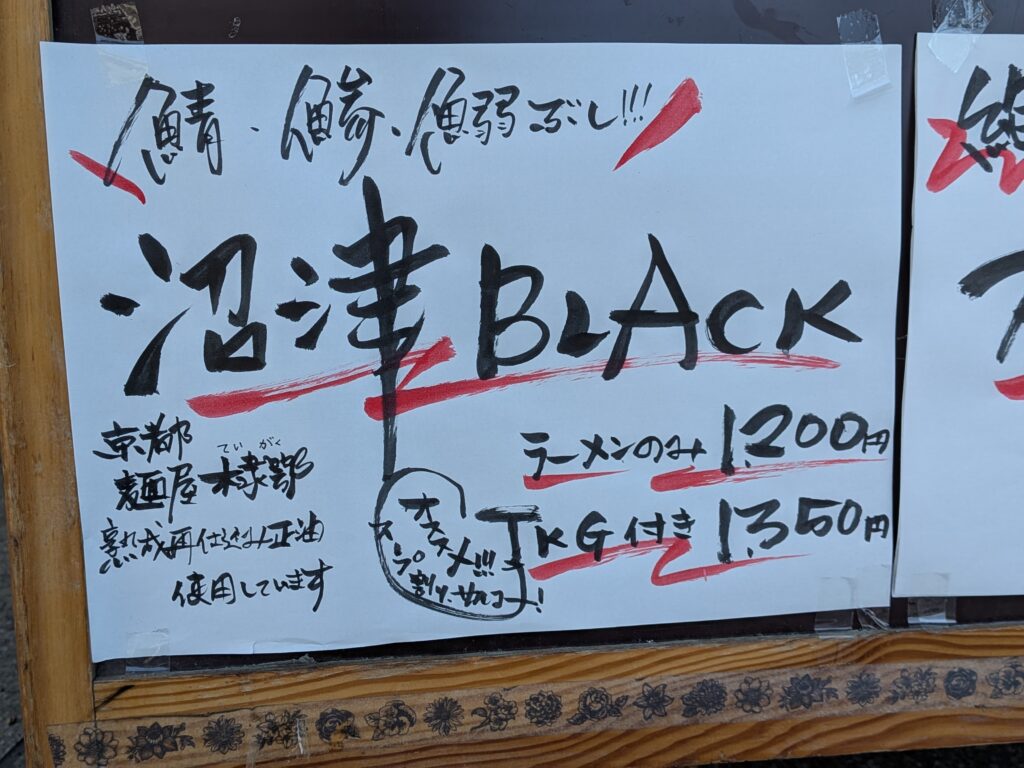 鯖・鯵・鰯ぶし!!!
沼津BLACK
京都
ていがく
麺屋 棣鄂
熟成再仕込み正油
使用しています
ラーメンのみ 1.200円
TKG付き 1.350円
オススメ!!!
スープ
割り、サイコー!